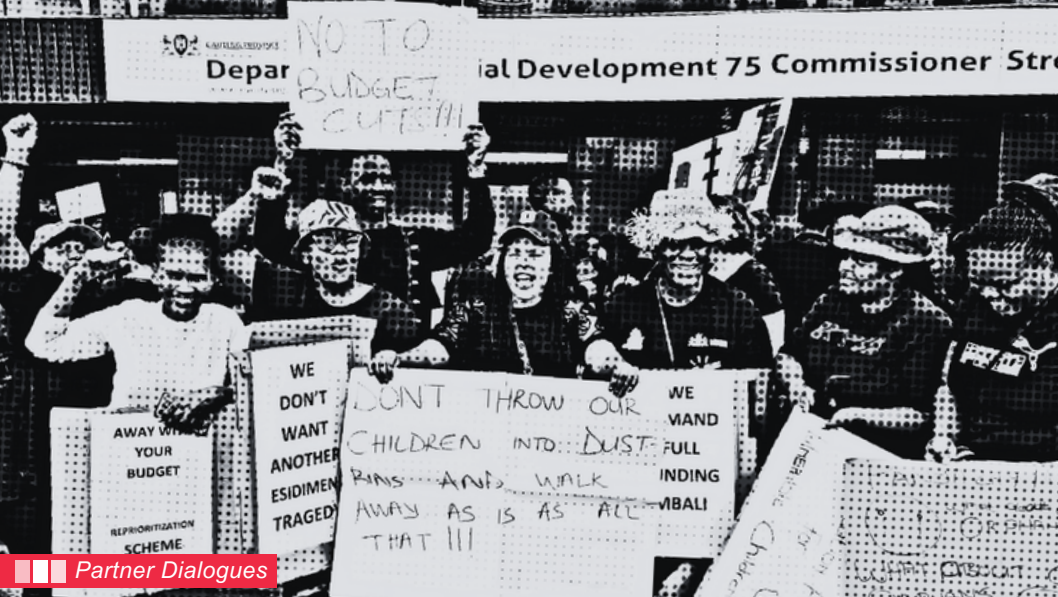 NO TO
BUDGET
CUTS!!!
Depar ial Development 75 Commissioner Stre
AWAY WITH
YOUR
BUDGET
REPRIORITIZATION
SCHEME
WE
DON'T
WANT
ANOTHER
ESIDIMEN
TRAGEDY
DONT THROW OUR
CHILDREN INTO DUST
BINS AND WALK
AWAY AS IS AS ALL
THAT !!!
WE
MAND
FULL
NDING
MBALI
WHAT ABOUT
Partner Dialogues